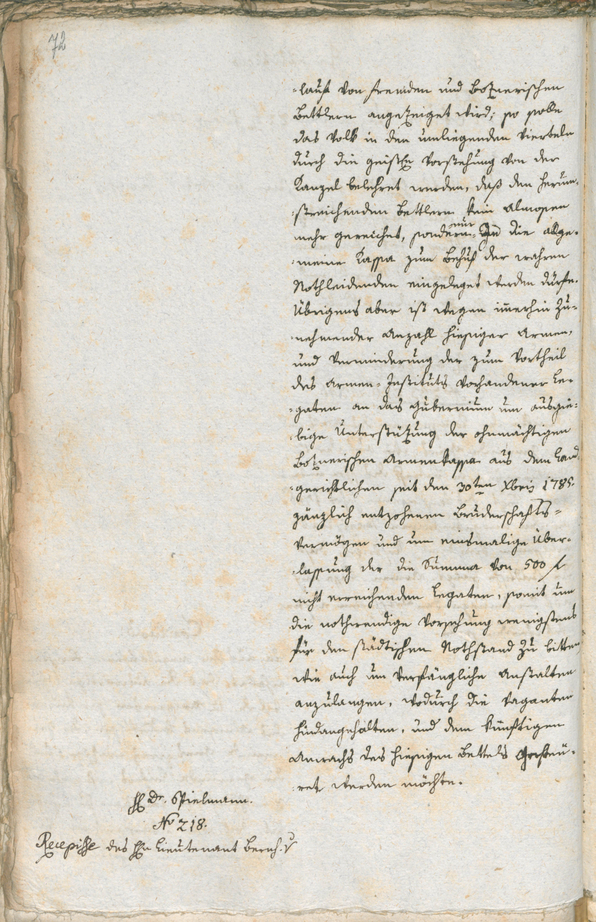 72
-lauf von fremden und Botznerischen
Bettlern angezeiget wird; so solle
das Volk in den umliegenden Vierteln
durch die geistl. Vorstehung von der
Kanzel belehret werden, daß den herum-
-streichenden Bettlern kein Almosen
mehr gereichet, sondern nur in die allge-
-meine Kassa zum Behuf der wahren
Nothleidenden eingeleget werden dürfe.
Übrigens aber ist wegen immerhin zu-
-nehmender Anzahl hiesiger Armen,
und Verminderung der zum Vortheil
des Armen-Instituts vorhandener Le-
-gaten an das Gubernium um ausgie-
-bige Unterstützung der ohnmächtigen
Botznerischen Armenkassa aus dem Land-
-gerichtlichen seit den 30ten Xbris 1785.
gänzlich entzohenen Bruderschafts-
Vermögen und um einsmalige Über-
-lassung der die Summa von 500 f
nicht erreichenden Legaten, somit um
die nothwendige Vorsehung wenigstens
für den städtischen Nothstand zu bitten
wie auch um verfängliche Anstalten
anzulangen, wodurch die Vaganten
hindangehalten, und dem künftigen
Anwachs des hiesigen Bettels gesteu-
-ret werden möchte.
H Dr. Spielmann.
No 218.
Recepisse des Hn Lieutenant Bernh. v